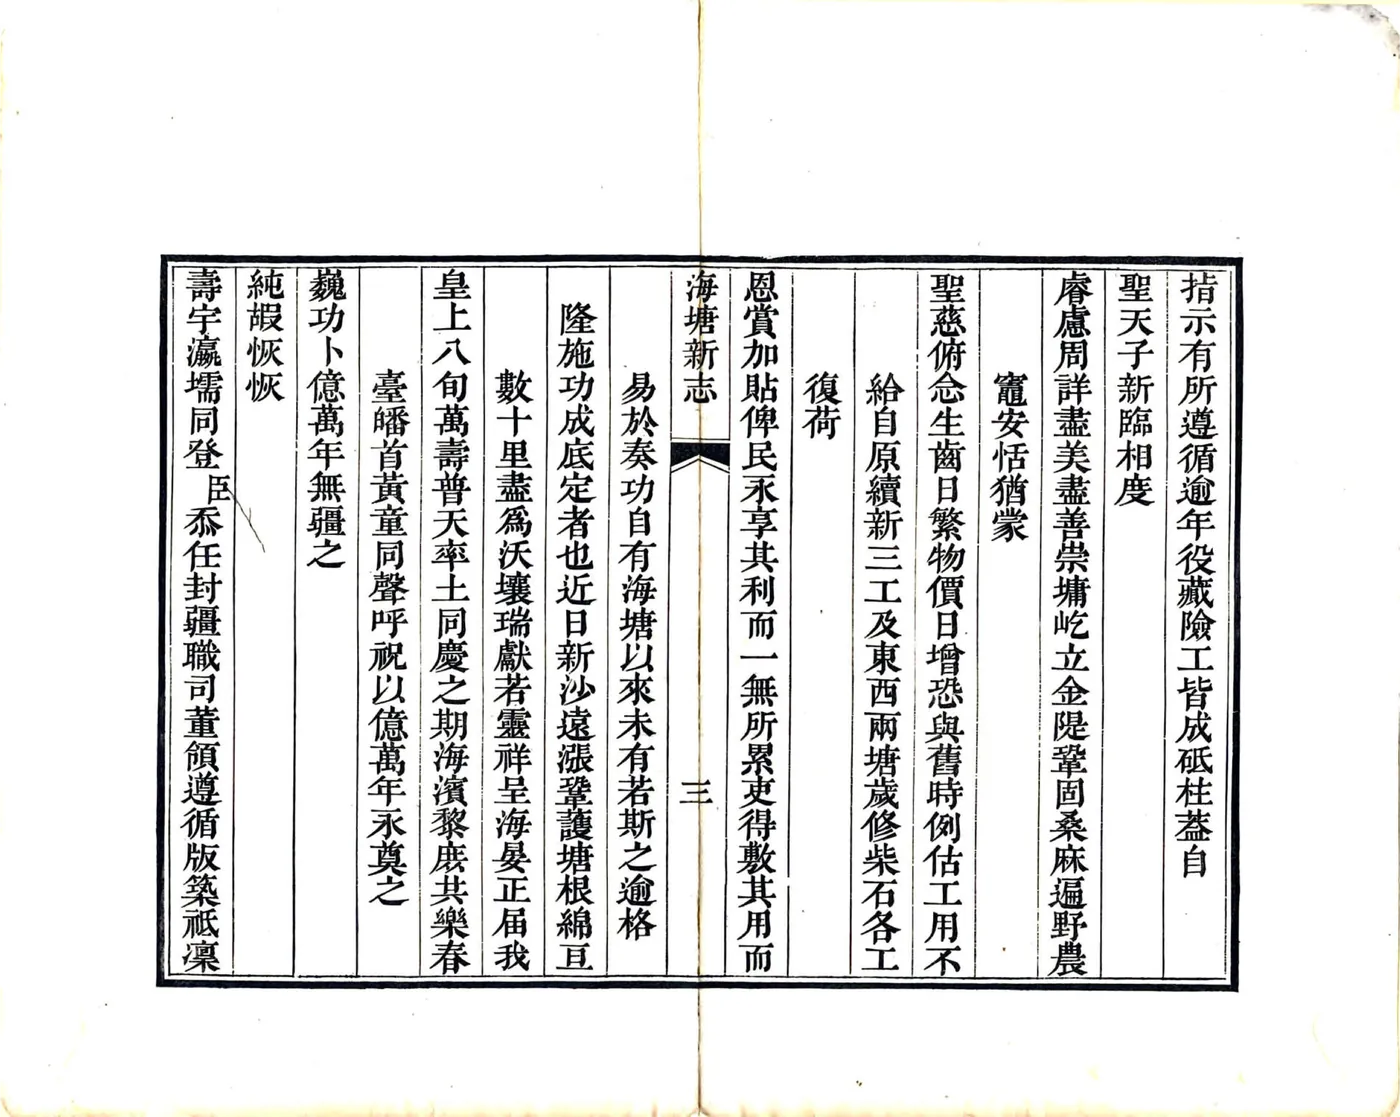 指示有所遵循逾年役蕆險工皆成砥柱葢自
聖天子新臨相度
睿慮周詳盡美盡善崇墉屹立金隄鞏固桑麻遍野農
竈安恬猶蒙
聖慈俯念生齒日繁物價日增恐與舊時例估工用不
給自原續新三工及東西兩塘歲修柴石各工
復荷
恩賞加貼俾民永享其利而一無所累吏得敷其用而
海塘新志
三
易於奏功自有海塘以來未有若斯之逾格
隆施功成底定者也近日新沙遠漲鞏護塘根綿亘
數十里盡爲沃壤瑞獻若靈祥呈海晏正届我
皇上八旬萬壽普天率土同慶之期海濱黎庶共樂春
臺皤首黃童同聲呼祝以億萬年永奠之
巍功卜億萬年無疆之
純嘏恢恢
壽宇瀛壖同登臣忝任封疆職司董領遵循版築祗凜